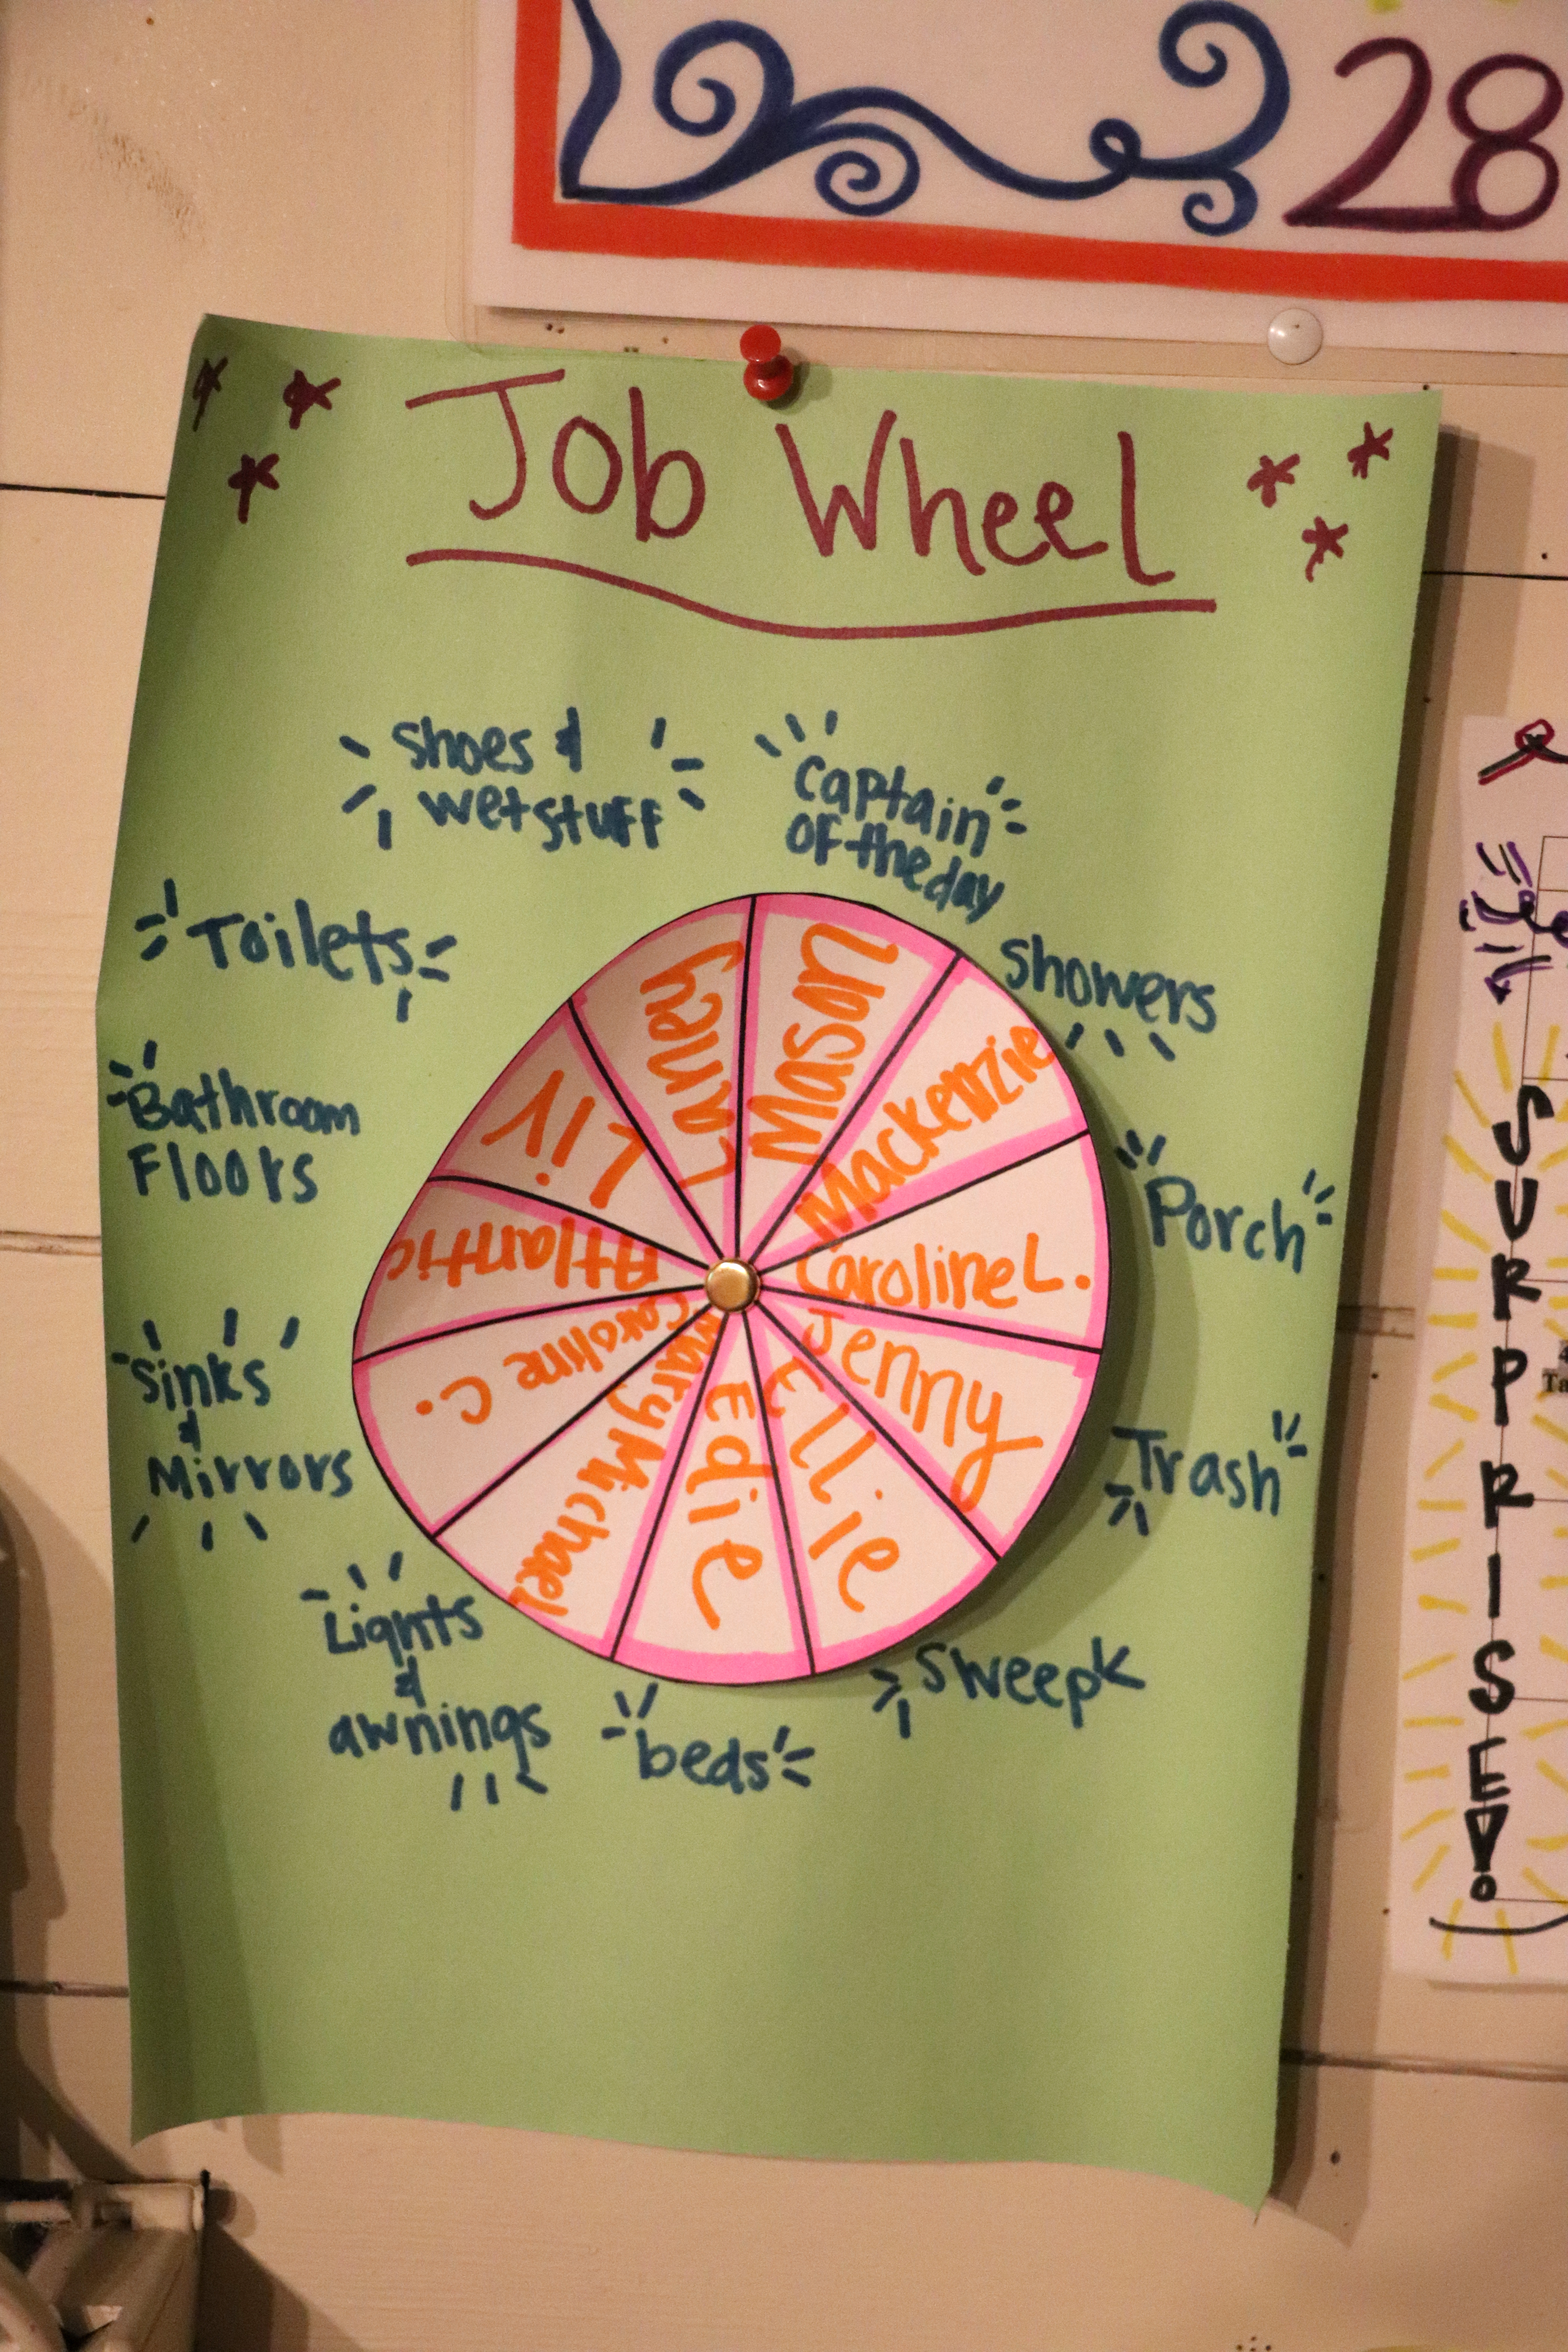 28
Job Wheel
Shoes &
wet stuff
Captain
of the day
Showers
Porch
Trash
Sweep
beds
Lights
&
awnings
Sinks
&
Mirrors
Bathroom
Floors
Toilets
Mason
Mackenzie
Caroline L.
Jenny
Ellie
Edie
Mary Michael
Caroline C.
Atlantic
Liv
Laney
SURPRISE!